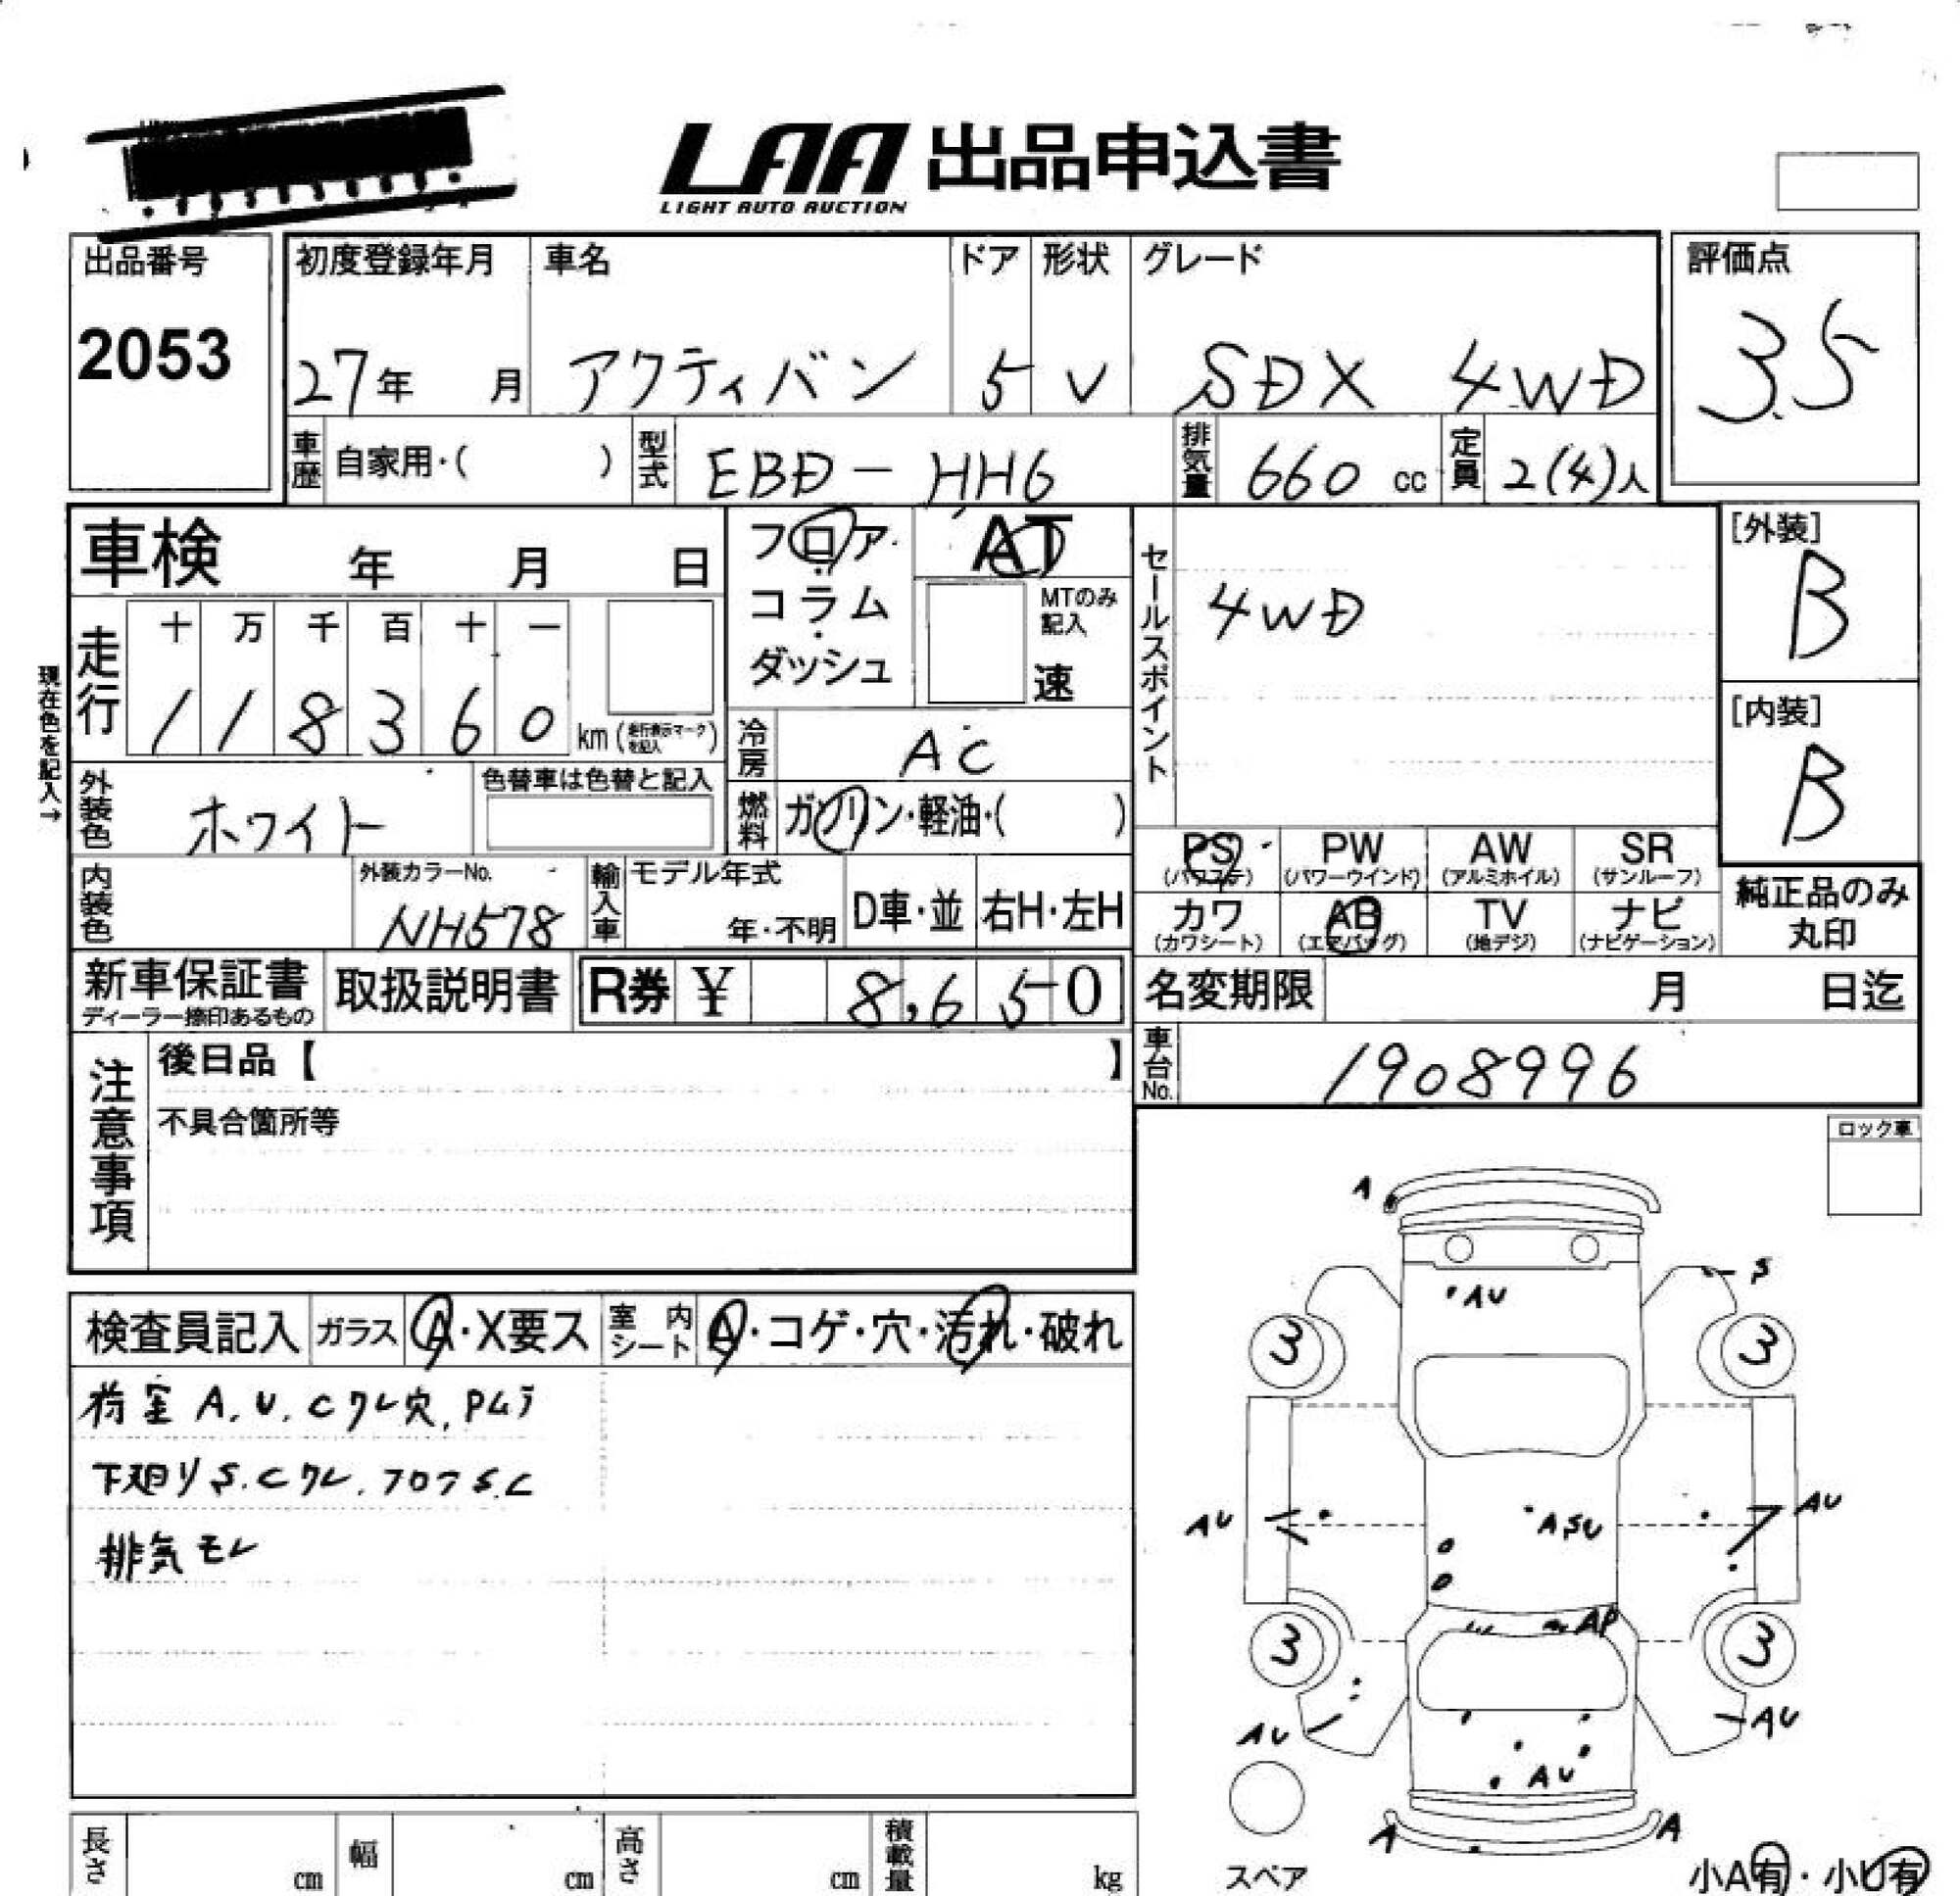 LAA 出品申込書
LIGHT AUTO AUCTION
出品番号
2053
初度登録年月 車名 ドア 形状 グレード
27年 月 アクティバン 5 V SDX 4WD
評価点
3.5
車歴 自家用・( ) 型式 EBD-HH6 排気量 660 cc 定員 2(4)人
車検 年 月 日
フロア・コラム・ダッシュ
AT
MTのみ記入
速
セールスポイント
4WD
[外装]
B
[内装]
B
現在色を記入→
走行 十 万 千 百 十 一
1 1 8 3 6 0 km (走行表示マークを記入)
冷房 AC
外装色 ホワイト 色替車は色替と記入
燃料 ガソリン・軽油・( )
PS PW AW SR
(パワステ) (パワーウインド) (アルミホイル) (サンルーフ)
カワ AB TV ナビ
(カワシート) (エアバッグ) (地デジ) (ナビゲーション)
純正品のみ
丸印
内装色 外装カラーNo. NH578 輸入車 モデル年式 年・不明 D車・並 右H・左H
新車保証書 取扱説明書 R券 ¥ 8,650
ディーラー捺印あるもの
名変期限 月 日迄
車台No. 1908996
注意事項
後日品【 】
不具合箇所等
ロック車
検査員記入 ガラス A・X要ス 室内シート A・コゲ・穴・汚れ・破れ
荷室 A.U.Cワレ穴.
下廻りS.Cワレ.フロアS.C
排気モレ
A
S
AU
3 3
AU AU
ASU
AP
3 3
AU AU
AU
A A
スペア
小A有・小U有
長さ cm 幅 cm 高さ cm 積載量 kg